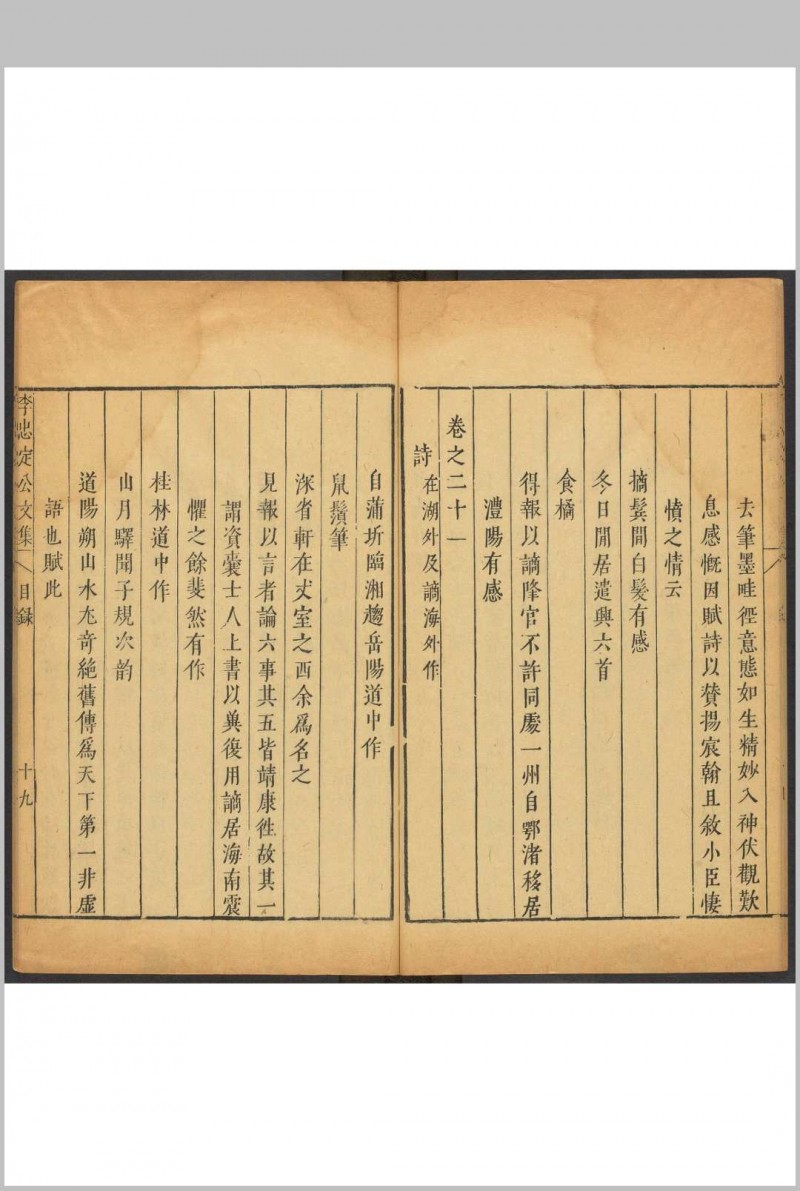 去筆墨畦徑意態如生精妙入神伏觀歎
息感慨因賦詩以贊揚宸翰且敘小臣悽
憤之情云
摘鬓間白髮有感
冬日閒居遣興六首
食橘
得報以謫降官不許同處一州自鄂渚移居
澧陽有感
卷之二十一
詩在湖外及謫海外作
自蒲圻臨湘趨岳陽道中作
鼠鬚筆
深省軒在丈室之西余爲名之
見報以言者論六事其五皆靖康徃故其一
謂資囊士人上書以冀復用謫居海南震
懼之餘斐然有作
桂林道中作
山月驛聞子規次韵
道陽朔山水尤竒絕舊傳爲天下第一非虛
語也賦此
李忠定公文集 目録 十九